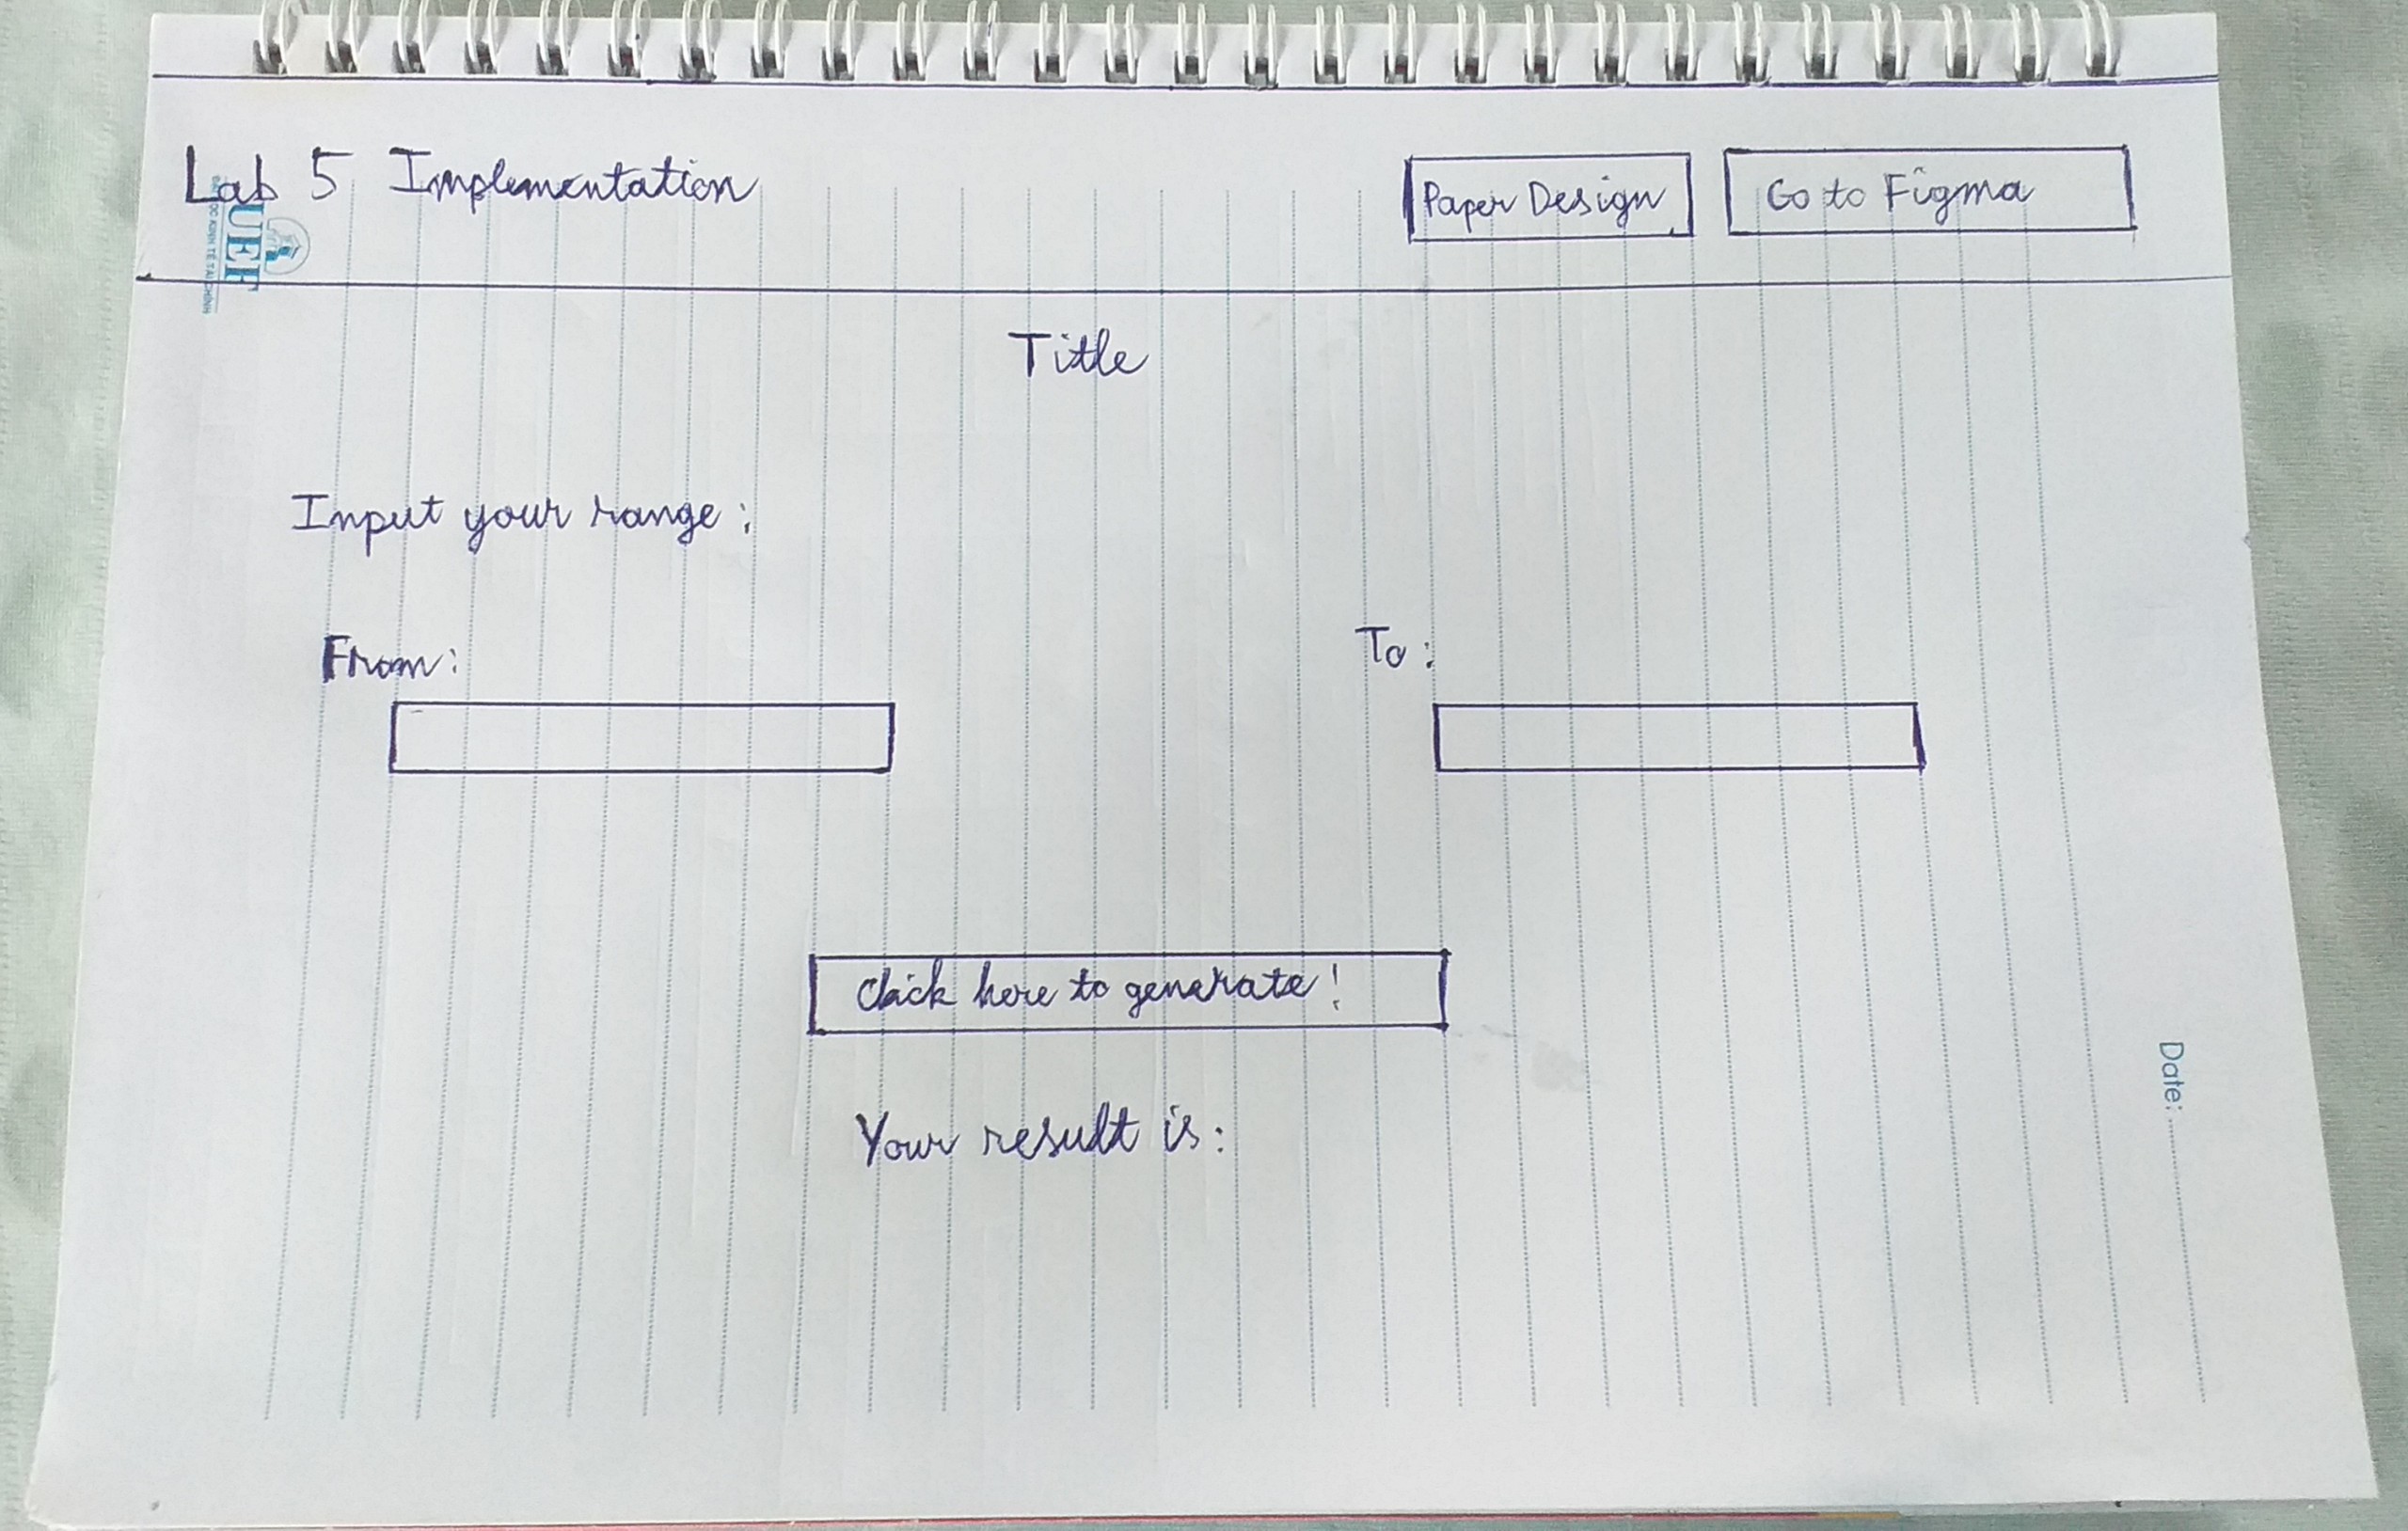 Lab 5 Implementation
Paper Design
Go to Figma
UEF
Title
Input your range:
From:
To:
Click here to generate!
Your result is:
Date: